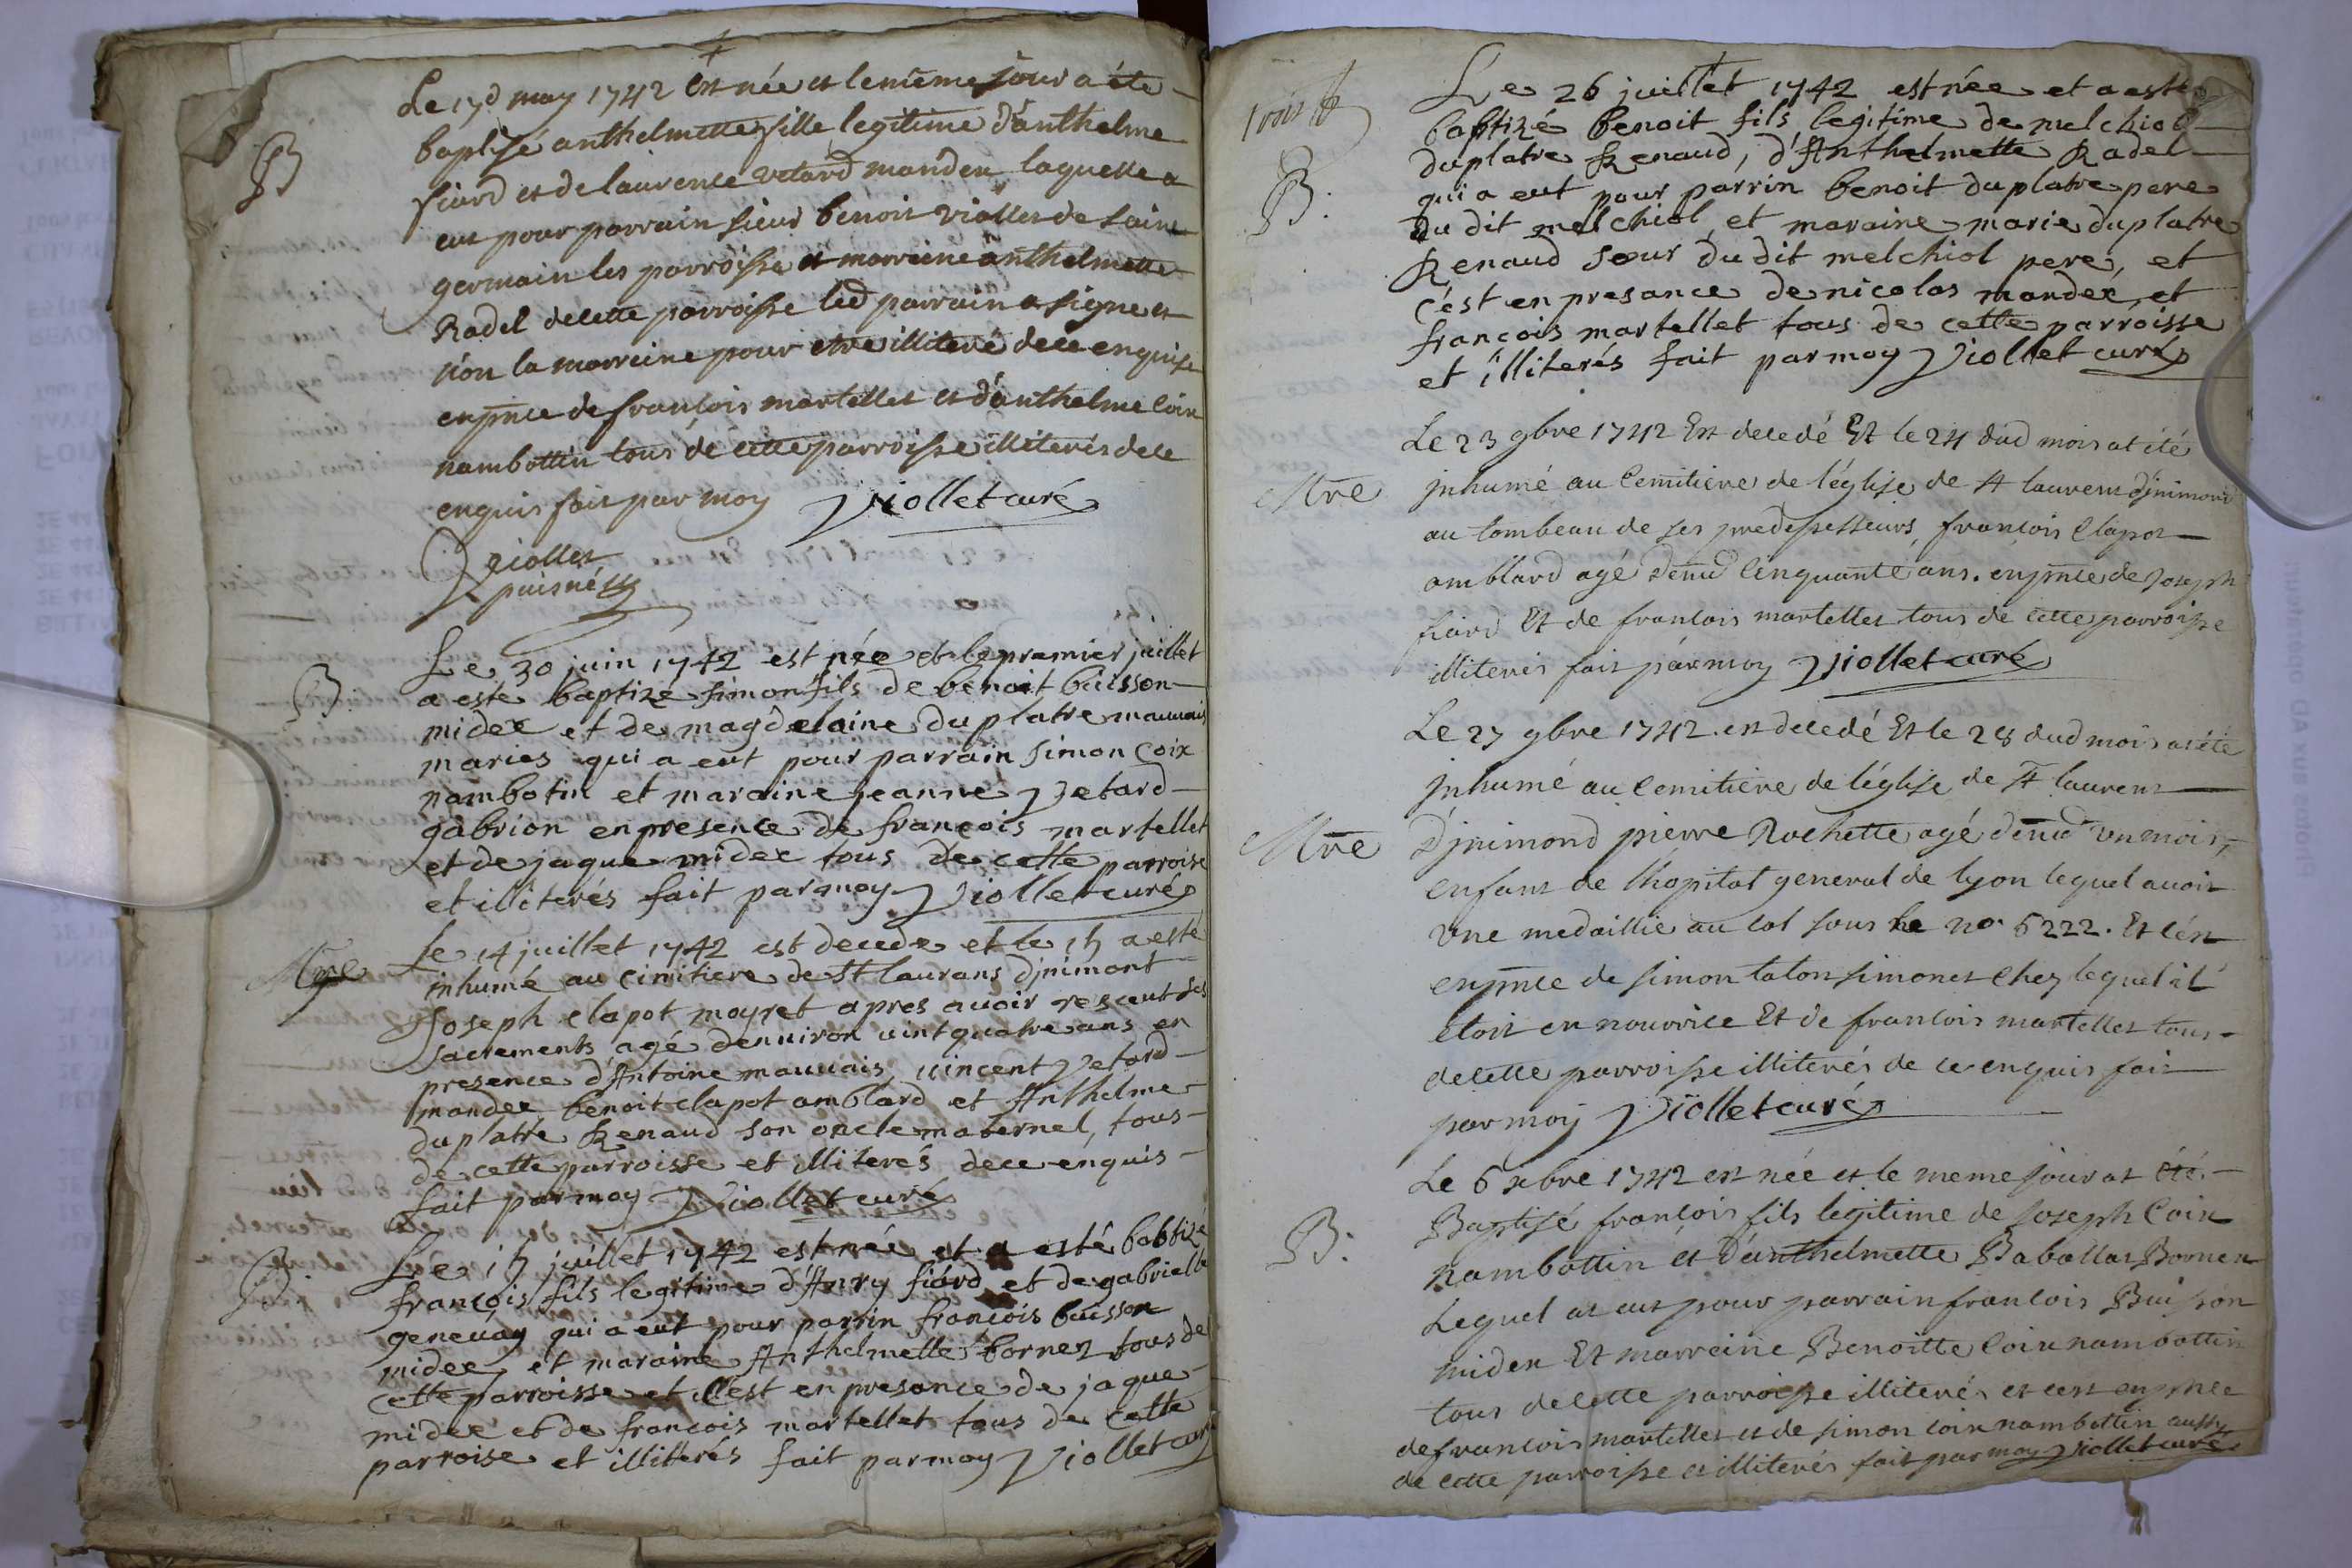 B
Le 17d may 1742 est née et le meme jour a éte
baptisé anthelmette fille legitime d'anthelme
fiard et de laurence vetard mandex laquelle a
eut pour parrain sieur benoit viollet de saint
germain les parroisse et marreine anthelmette
Radel de cette parroisse led parrain a signe et
non la marreine pour etre illiteré de ce enquise
en pnce de francois martellet et d'anthelme Coix
nambottin tous de cette parroisse illiterés de ce
enquis fait par moy Viollet curé
Viollet
puisné
B.
Le 30 juin 1742 est née et le premier juillet
a este baptize simon fils de benoit buisson
midex et de magdelaine duplatre mauvais
maries qui a eut pour parrain simon Coix
nambotin et maraine jeanne Vetard
gabrion en presence de françois martellet
et de jaque midex tous de cette parroise
et illiterés fait par moy Viollet curé
Mre
Le 14 juillet 1742 est decede et le 15 a este
inhumé au cimitiere de St laurans d'jnimont
Joseph clapot moyret apres avoir resceut ses
sacrements agé denviron vint quatre ans en
presence d'Antoine mauvais, vincent Vetard
mandex benoit clapot amblard et Anthelme
duplatre Renaud son oncle maternel, tous
de cette parroisse et illiterés de ce enquis
fait par moy Viollet curé
B.
Le 15 juillet 1742 est née et a esté babtizé
françois fils legitime d'Anry fiard et de gabrielle
genevay qui a eut pour parrin francois buisson
midex, et maraine Anthelmette bornex tous de
cette parroisse et c'est en presance de jaque
midex et de francois martellet tous de cette
parroise et illiterés fait par moy Viollet curé
B.
Le 26 juillet 1742 est née et a esté
babtizé benoit fils legitime de melchiol
duplatre Renaud, d'Anthelmette Radel
qui a eut pour parrin benoit duplatre pere
du dit melchiol, et maraine marie duplatre
Renaud sœur du dit melchiol pere, et
c'ést en presance de nicolas mandex, et
francois martellet tous de cette parroisse
et illiterés fait par moy Viollet curé
Mre
Le 23 9bre 1742 Est decedé Et le 24 dud mois at été
jnhumé au Cemitiere de l'église de St laurent d'jnimond
au tombeau de ses predesseseurs, francois Clapot
amblard agé denvd Cinquante ans. en pnce de Joseph
fiard Et de francois martellet tous de cette parroisse
illiterés fait par moy Viollet curé
Mre
Le 27 9bre 1742 est decedé Et le 28 dud mois at été
jnhumé au Cemitiere de l'église de St laurent
d'jnimond pierre Rochette agé denvd un mois,
enfant de l'hopital general de lyon lequel avoit
une medaillie au Col sous le no 6222. Et c'est
en pnce de simon talon simonet chez lequel il
etoit en nourrice Et de francois martellet tous
de cette parroisse illiterés de ce enquis fait
par moy Viollet curé
B.
Le 6 xbre 1742 est née et le meme jour at été
Baptisé francois fils legitime de Joseph Coix
nambottin et d'anthelmette Baballas Bornex
Lequel at eut pour parrain francois Buisson
midex Et marreine Benoitte Coix nambottin
tous de cette parroisse illiterés et cest en pnce
de francois martellet et de simon coix nambottin aussy
de cette parroisse et illiterés fait par moy Viollet curé